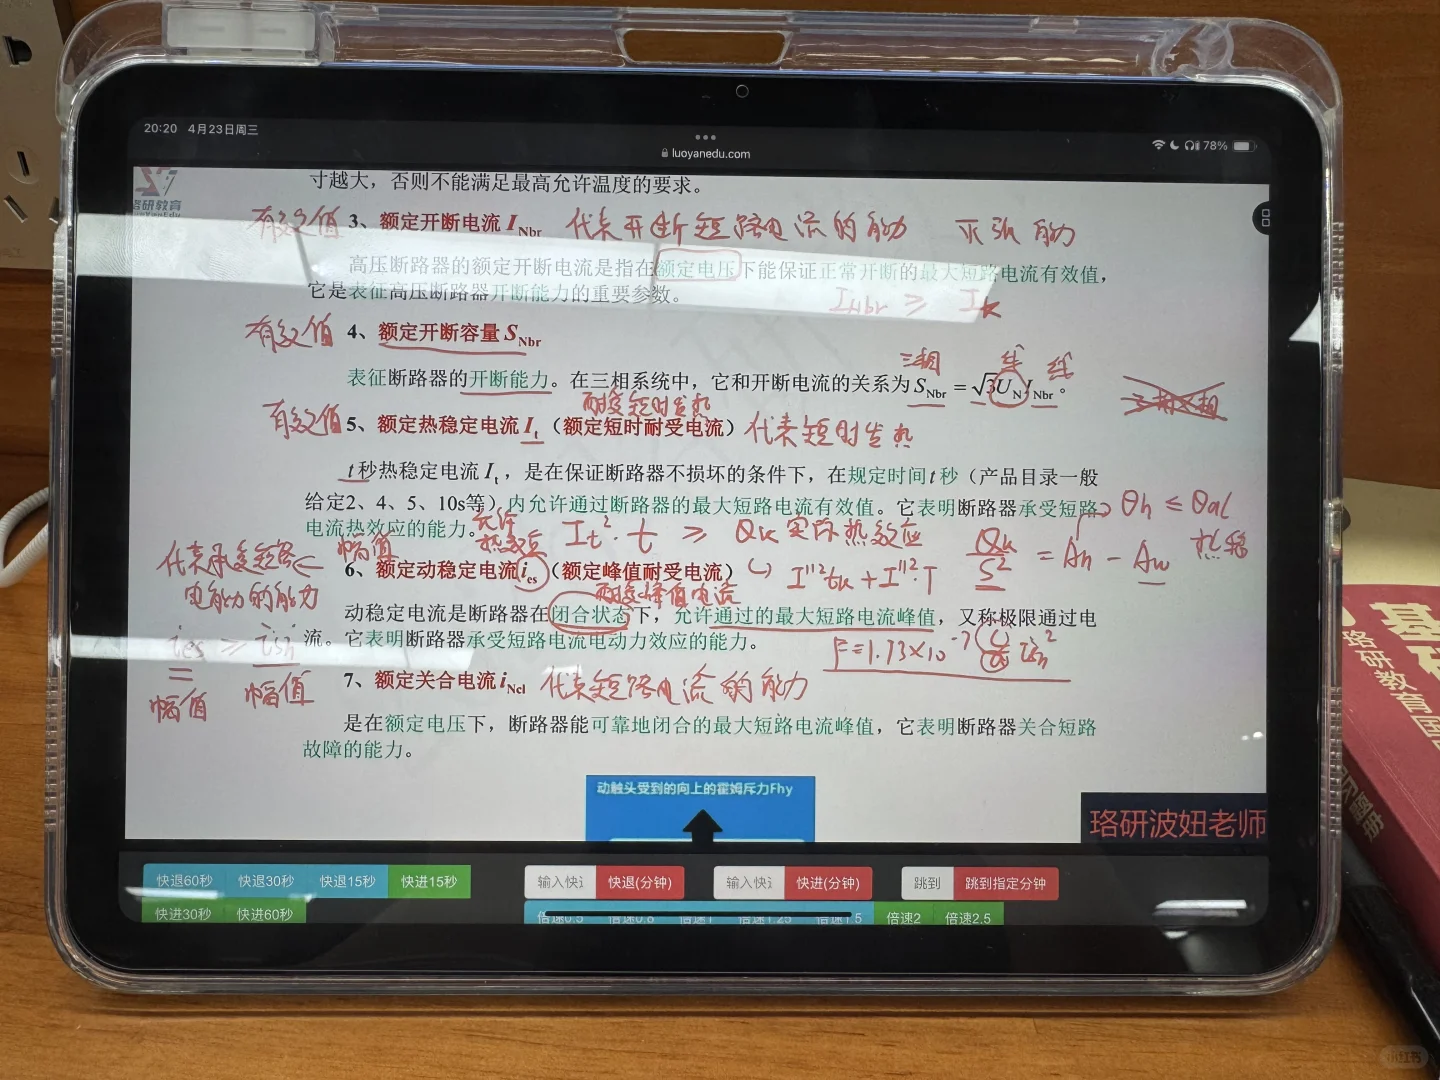 20:20 4月23日周三
78%
luoyanedu.com
珞研教育
寸越大，否则不能满足最高允许温度的要求。
有效值 3、额定开断电流 I_Nbr 代表开断短路电流的能力 灭弧能力
高压断路器的额定开断电流是指在额定电压下能保证正常开断的最大短路电流有效值，
它是表征高压断路器开断能力的重要参数。
I_Nbr ≥ I_k
有效值 4、额定开断容量 S_Nbr
三相 线 线
表征断路器的开断能力。在三相系统中，它和开断电流的关系为 S_Nbr = √3U_N I_Nbr。
耐受短时发热
有效值 5、额定热稳定电流 I_t（额定短时耐受电流） 代表短时发热
t秒热稳定电流 I_t，是在保证断路器不损坏的条件下，在规定时间 t 秒（产品目录一般
给定2、4、5、10s等）内允许通过断路器的最大短路电流有效值。它表明断路器承受短路
电流热效应的能力。
θh ≤ θal
允许热效应 It²·t ≥ Qk 实际热效应
Qk/S² = Ah − Aw 热稳
代表承受短路
电动力的能力
幅值
6、额定动稳定电流 i_es（额定峰值耐受电流）
I''²tk + I''²·T
耐受峰值电流
动稳定电流是断路器在闭合状态下，允许通过的最大短路电流峰值，又称极限通过电
流。它表明断路器承受短路电流电动力效应的能力。
ies ≥ ish
幅值 幅值
F=1.73×10⁻⁷ (L/a) ish²
7、额定关合电流 i_Ncl 代表短路电流的能力
是在额定电压下，断路器能可靠地闭合的最大短路电流峰值，它表明断路器关合短路
故障的能力。
动触头受到的向上的霍姆斥力Fhy
珞研波妞老师
快退60秒 快退30秒 快退15秒 快进15秒 快退(分钟) 快进(分钟) 跳到 跳到指定分钟
快进30秒 快进60秒 倍速0.5 倍速0.8 倍速1 倍速1.25 倍速1.5 倍速2 倍速2.5
珞研教育
小红书